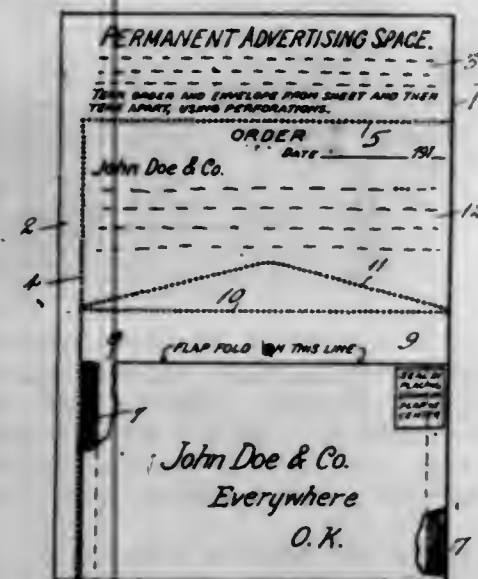 PERMANENT ADVERTISING SPACE.
3
TEAR ORDER AND ENVELOPE FROM SHEET AND THEN
TEAR APART, USING PERFORATIONS.
1
5
ORDER
DATE 191
John Doe & Co.
12
2
4
11
10
FLAP FOLD ON THIS LINE
9
SEAL BY
PLACING
7
John Doe & Co.
Everywhere
O.K.
7